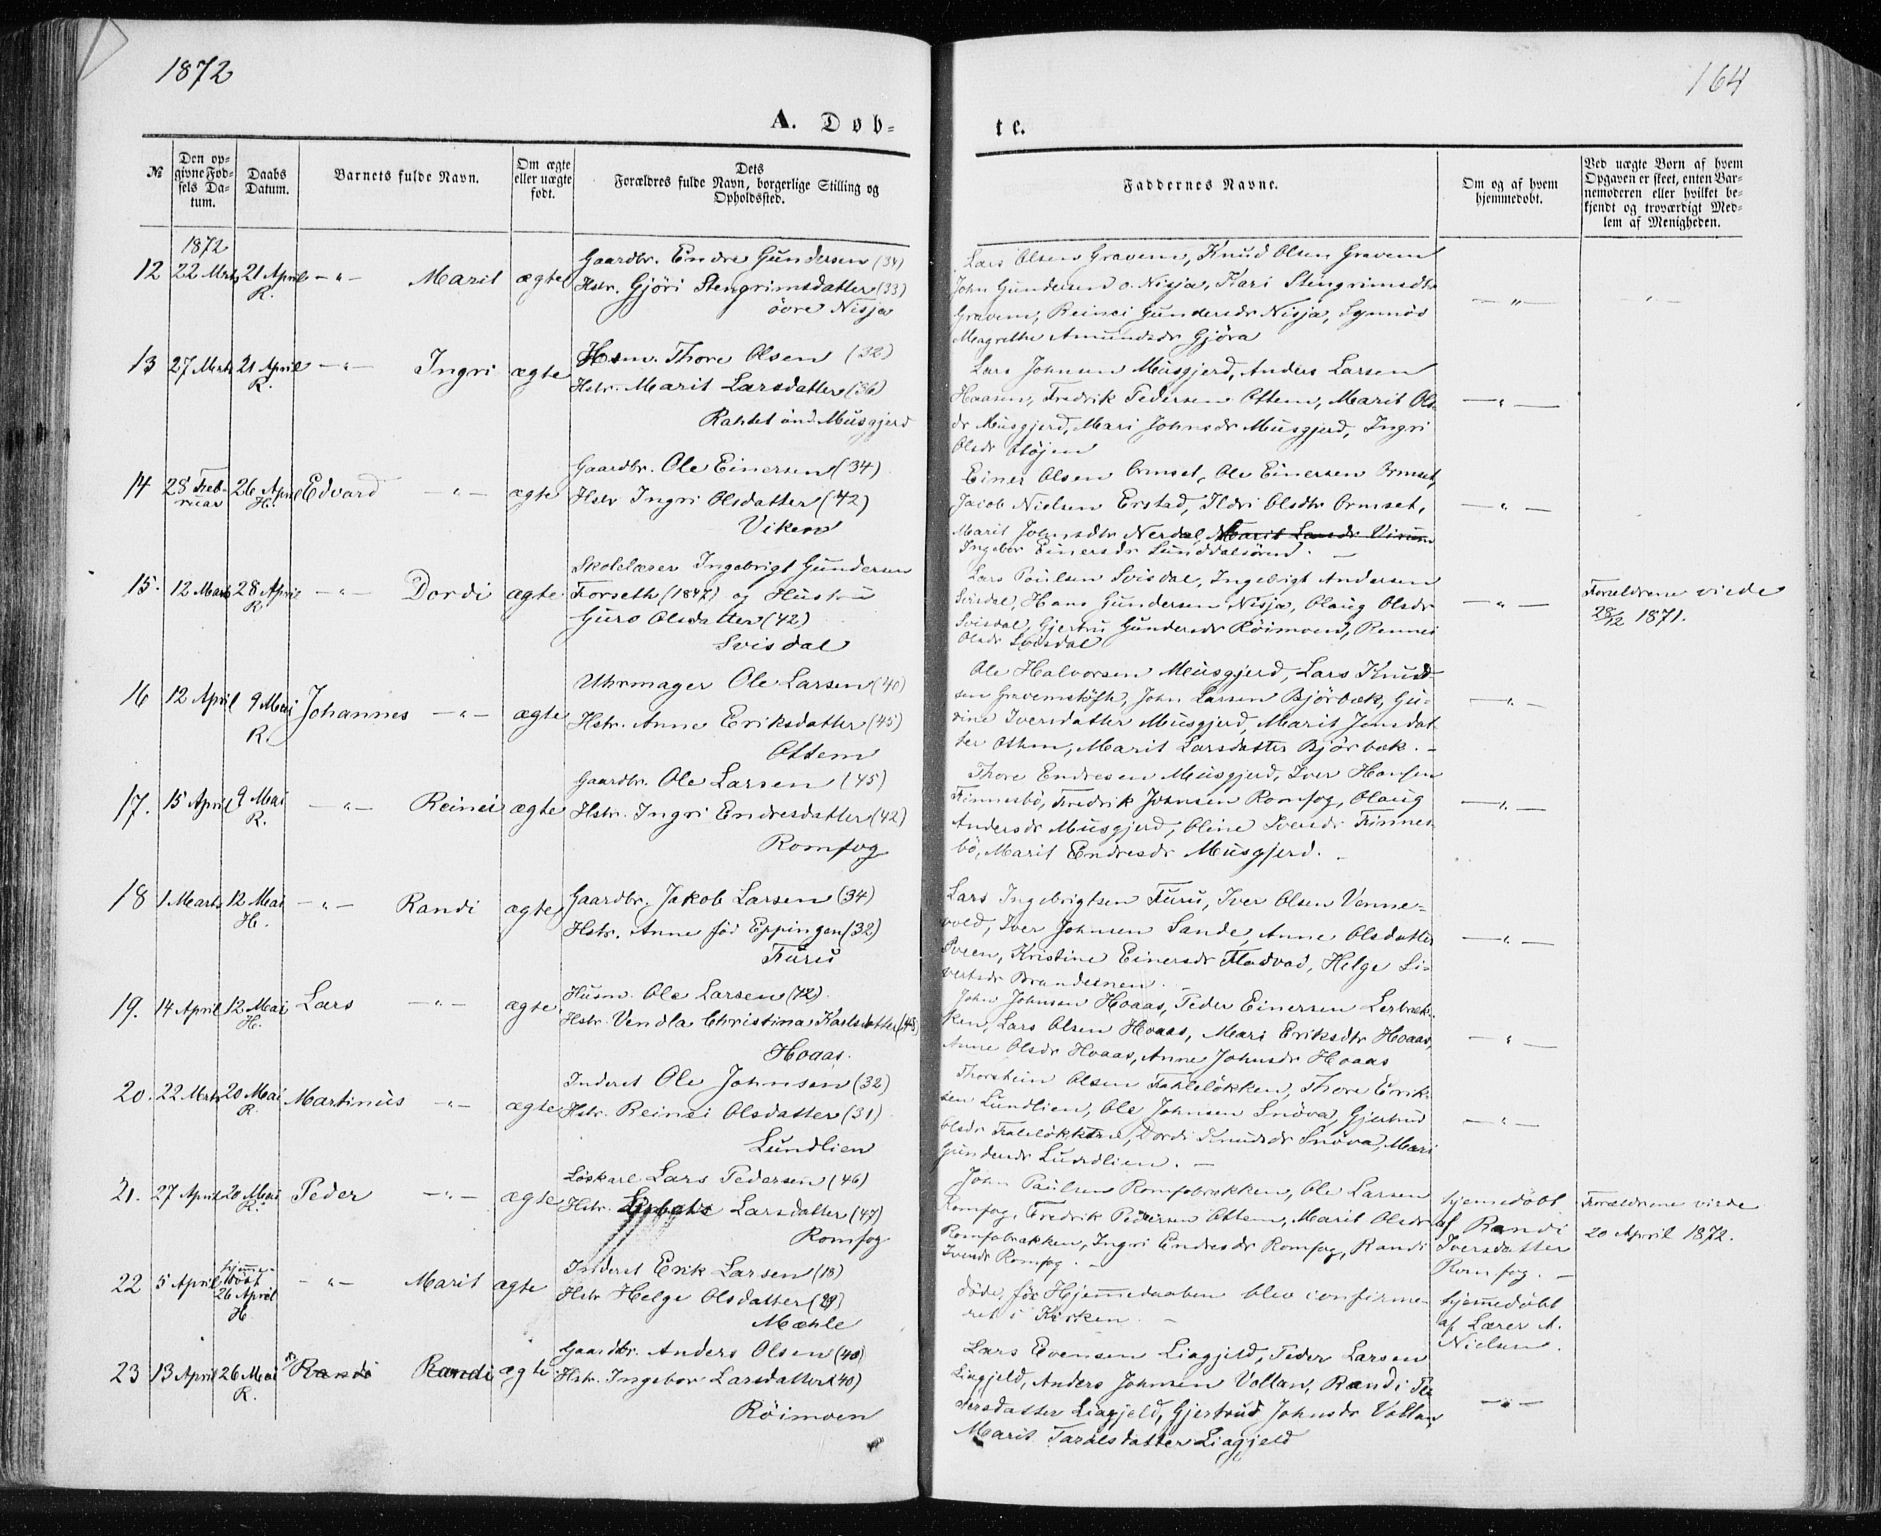 1872
164
A. Døb-
te.
№
Den op-
givne Fød-
sels Da-
tum.
Daabs
Datum.
Barnets fulde Navn.
Om ægte
eller uægte
født.
Dets
Forældres fulde Navn, borgerlige Stilling og
Opholdssted.
Faddernes Navne.
Om og af hvem
hjemmedøbt.
Ved uægte Børn af hvem
Opgaven er skeet, enten Bar-
nemoderen eller hvilket be-
kjendt og troværdigt Med-
lem af Menigheden.
1872
12 22 Mrts 21 April R. —"— Marit ægte
Gaardbr. Endre Gundersen (34)
Hstr. Gjöri Stengrimsdatter (33)
övre Nisja
Lars Olsen Gravem, Knud Olsen Gravem
John Gundersen ö. Nisja, Kari Stengrimsdtr
Gravem, Reinei Gundersdr Nisja, Synnöv
Magrethe Amundsdr Gjöra
—"—
13 27 Mrts 21 April R. —"— Ingri ægte
Husm. Thore Olsen (32)
Hstr. Marit Larsdatter (36)
Musgjerd
Lars Johnsen Musgjerd, Anders Larsen
Hoaasen, Fredrik Pedersen Ottem, Marit Ols-
dr Musgjerd, Mari Johnsdr Musgjerd, Ingri
Olsdr
—"—
14 28 Feb-
ruar 26 April H. Edvard —"— ægte
Gaardbr. Ole Einersen (34)
Hstr Ingri Olsdatter (42)
Viken
Einer Olsen Ormset, Ole Einersen Ormset,
Jacob Nielsen Erstad, Ildri Olsdtr Ormset,
Marit Johnsdtr Nerdal, Marit Larsdr
Ingebor Einersdr Lunddalsören. —
—"—
15. 12 Marts 28 April R. —"— Dordi ægte
Skolelærer Ingebrigt Gundersen
Forseth (1847) og Hustru
Guro Olsdatter (42)
Svisdal
Lars Poulsen Svisdal, Ingebrigt Andersen
Svisdal, Hans Gundersen Nisja, Olaug Olsdr
Svisdal, Gjertru Gundersdr Röimoen, Rennei
Olsdr Svisdal
—"—
Forældrene viede
28/12 1871.
16 12 April 9 Mai R. Johannes —"— ægte
Uhrmager Ole Larsen (40)
Hstr. Anne Eriksdatter (45)
Ottem
Ole Halvorsen Musgjerd, Lars Knud-
sen Gravemstöfth, John Larsen Björbæk, Gu-
rine Iversdatter Musgjerd, Marit Jonsdat-
ter Ottem, Marit Larsdatter Björbæk. —
—"—
17. 15 April 9 Mai R. —"— Reinei ægte
Gaardbr. Ole Larsen (45)
Hstr. Ingri Endresdatter (42)
Romfog
Thore Endresen Musgjerd, Iver Hansen
Finnesbö, Fredrik Johnsen Romfog, Olaug
Andersdr Musgjerd, Oline Iversdr Finnes-
bö, Marit Endresdr Musgjerd. —
—"—
18 1 Marts 12 Mai H. —"— Randi ægte
Gaardbr. Jakob Larsen (34)
Hstr. Anne föd Eppingen (32)
Furu
Lars Ingebrigtsen Furu, Iver Olsen Venne-
vold, Iver Johnsen Sande, Anne Olsdatter
Sveen, Kristine Einersdr Fladvad, Helge Si-
vertsdr Brandesnen.
—"—
19. 14 April 12 Mai H. Lars —"— ægte
Husm. Ole Larsen (42).
Hstr. Vendla Christina Karlsdatter (48)
Hoaas.
John Johnsen Hoaas, Peder Einersen Lerbæk-
ken, Lars Olsen Hoaas, Mari Eriksdtr Hoaas,
Anne Olsdr Hoaas, Anne Johnsdr Hoaas
—"—
20. 22 Mrts 20 Mai R. Martinus —"— ægte
Inderst Ole Johnsen (32)
Hstr. Reinei Olsdatter (31)
Lundlien
Thorstein Olsen Fahlelökken, Thore Erik-
sen Lundlien, Ole Johnsen Snöva, Gjertrud
Olsdr Falelökken, Dordi Knudsdr Snöva, Mari
Gundersdr Lundlien. —
—"—
21. 27 April 20 Mai R. Peder —"— ægte
Löskarl Lars Pedersen (46)
Hstr. Larsdatter (47)
Romfog
John Paulsen Romfobrækken, Ole Larsen
Romfog, Fredrik Pedersen Ottem, Marit Olsdr
Romfobrækken, Ingri Endresdr Romfog, Randi
Iversdr Romfog. —
hjemmedöbt
af Randi
Iversdatter
Romfog. —
Forældrene viede
20 April 1872.
22 5 April hjemme-
döbt
26 April
H. —"— Marit ægte
Inderst Erik Larsen (18)
Hstr Helge Olsdatter
Mæhle
döde, för Hjemmedaaben blev confirme-
ret i Kirken. —
hjemmedöbt
af Lærer A.
Nielsen.
23 13 April 26 Mai R. Randi Randi ægte
Gaardbr. Anders Olsen (40)
Hstr. Ingebor Larsdatter (40)
Röimoen
Lars Evensen Liagjeld, Peder Larsen
Liagjeld, Anders Johnsen Vollan, Randi Pe-
dersdatter Liagjeld, Gjertrud Johnsdr Vollan,
Marit Taralsdatter Liagjeld
—"—